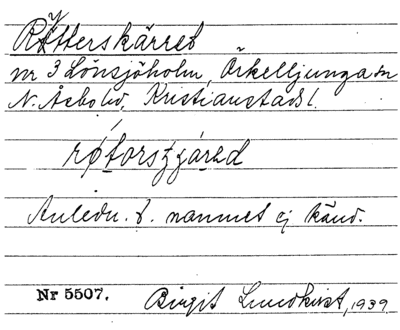 Rytterskärret
nr 3 Lönsjöholm, Örkelljunga sn
N. Åsbo hd, Kristianstads l.
Anledn. t. namnet ej känd.
Nr 5507. Birgit Lundkvist, 1939.